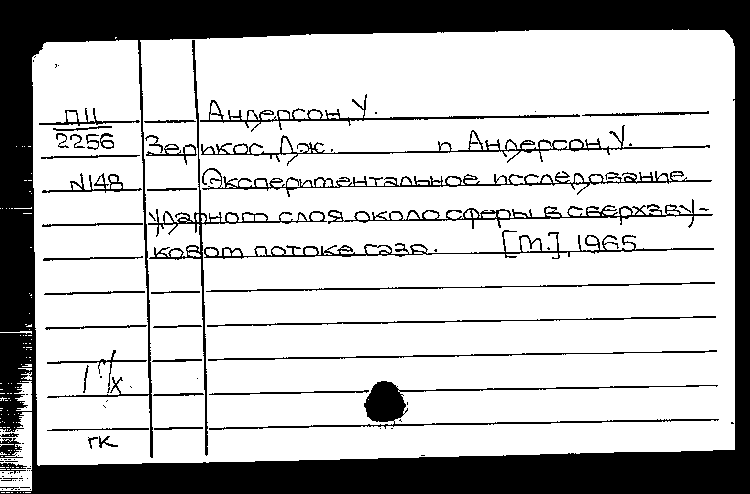 Андерсон, У.
П11
2256 Зерикос, Дж. и Андерсон, У.
N148 Экспериментальное исследование
ударного слоя около сферы в сверхзву-
ковом потоке газа. [М.], 1965
ГК